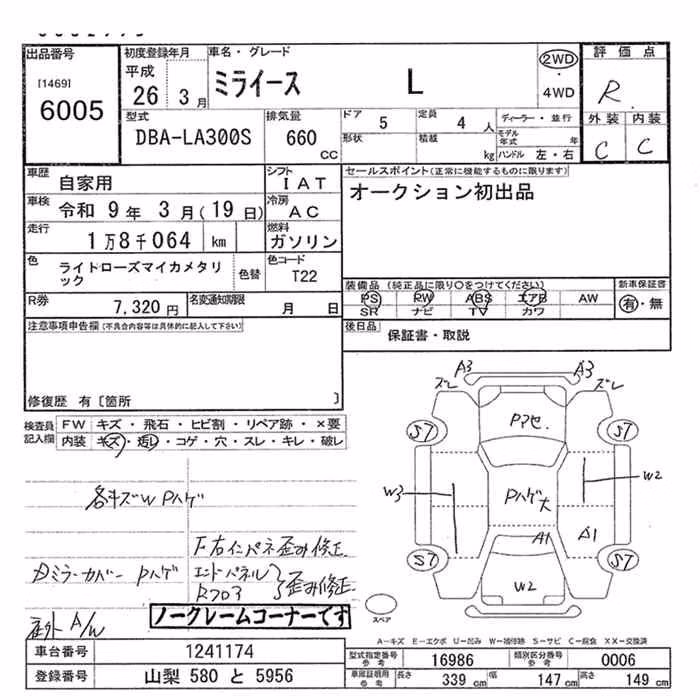 出品番号
[1469]
6005
初度登録年月
平成
26 3月
車名・グレード
ミライース L
2WD
・
4WD
評価点
R
外装 内装
C C
型式
DBA-LA300S
排気量
660
CC
ドア 5
定員 4 人
形状
積載 kg
ディーラー・並行
モデル年式 年
ハンドル 左・右
車歴
自家用
シフト
IAT
車検
令和 9年 3月(19日)
冷房
AC
走行
1万8千064 km
燃料
ガソリン
色
ライトローズマイカメタリック
色替
色コード
T22
R券
7,320円
名変通知期限
月 日
セールスポイント(正常に機能するものに限ります)
オークション初出品
装備品(純正品に限り○をつけてください)
PS PW ABS エアB AW
SR ナビ TV カワ
新車保証書
有・無
後日品
保証書・取説
注意事項申告欄(不具合内容等は具体的に記入して下さい)
修復歴 有[箇所 ]
検査員記入欄
FW キズ・飛石・ヒビ割・リペア跡・×要
内装 キズ・汚レ・コゲ・穴・スレ・キレ・破レ
各キズW Pハゲ
F右インパネ歪み修正
ミラーカバー Pハゲ
エンドパネル
Rフロア
歪み修正
A/W
ノークレームコーナーです
A3 A3
ズレ ズレ
Pアセ.
S7 S7
W3 W2
Pハゲ大
A1 A1
S7 S7
W2
スペア
A-キズ E-エクボ U-凹み W-補修跡 S-サビ C-腐食 XX-交換済
車台番号
1241174
登録番号
山梨 580 と 5956
型式指定番号
参考
16986
類別区分番号
参考
0006
車庫証明用
参考
長さ 339 cm
幅 147 cm
高さ 149 cm